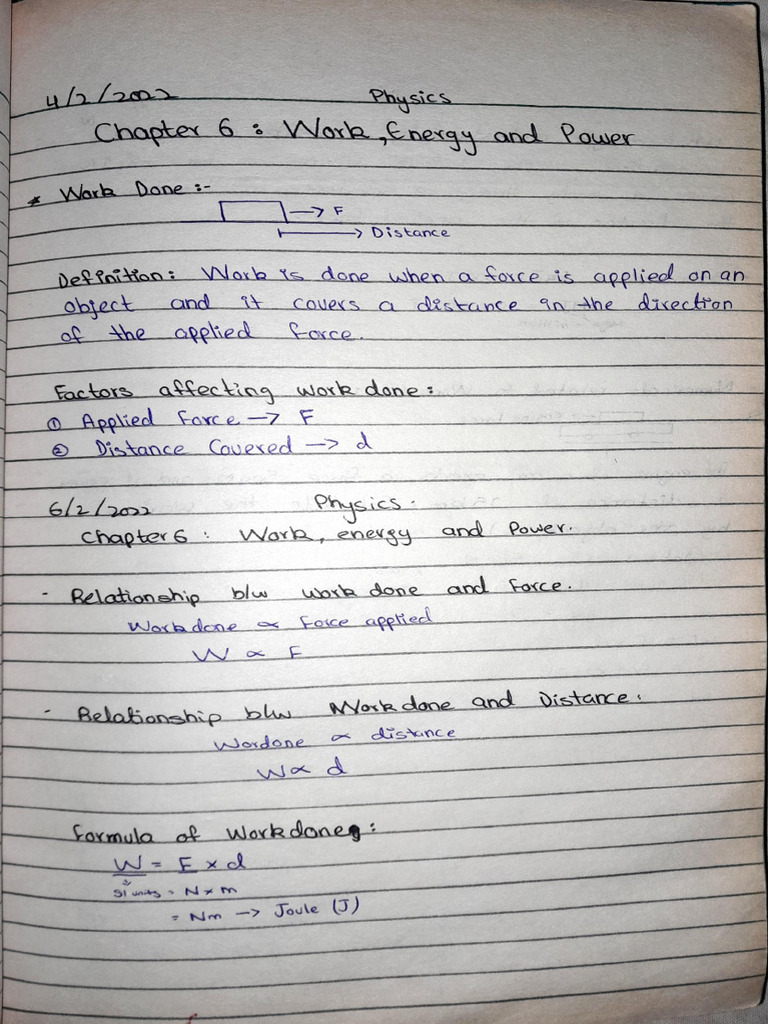 4/2/2022 Physics
Chapter 6 : Work, Energy and Power
* Work Done :-
→ F
Distance
Definition: Work is done when a force is applied on an
object and it covers a distance in the direction
of the applied force.
Factors affecting work done :
① Applied Force → F
② Distance Covered → d
6/2/2022 Physics.
Chapter 6 : Work, energy and Power.
- Relationship b/w work done and force.
Workdone ∝ Force applied
W ∝ F
- Relationship b/w Workdone and Distance.
Wordone ∝ distance
W ∝ d
Formula of Workdone:
W = F × d
SI units = N × m
= Nm → Joule (J)